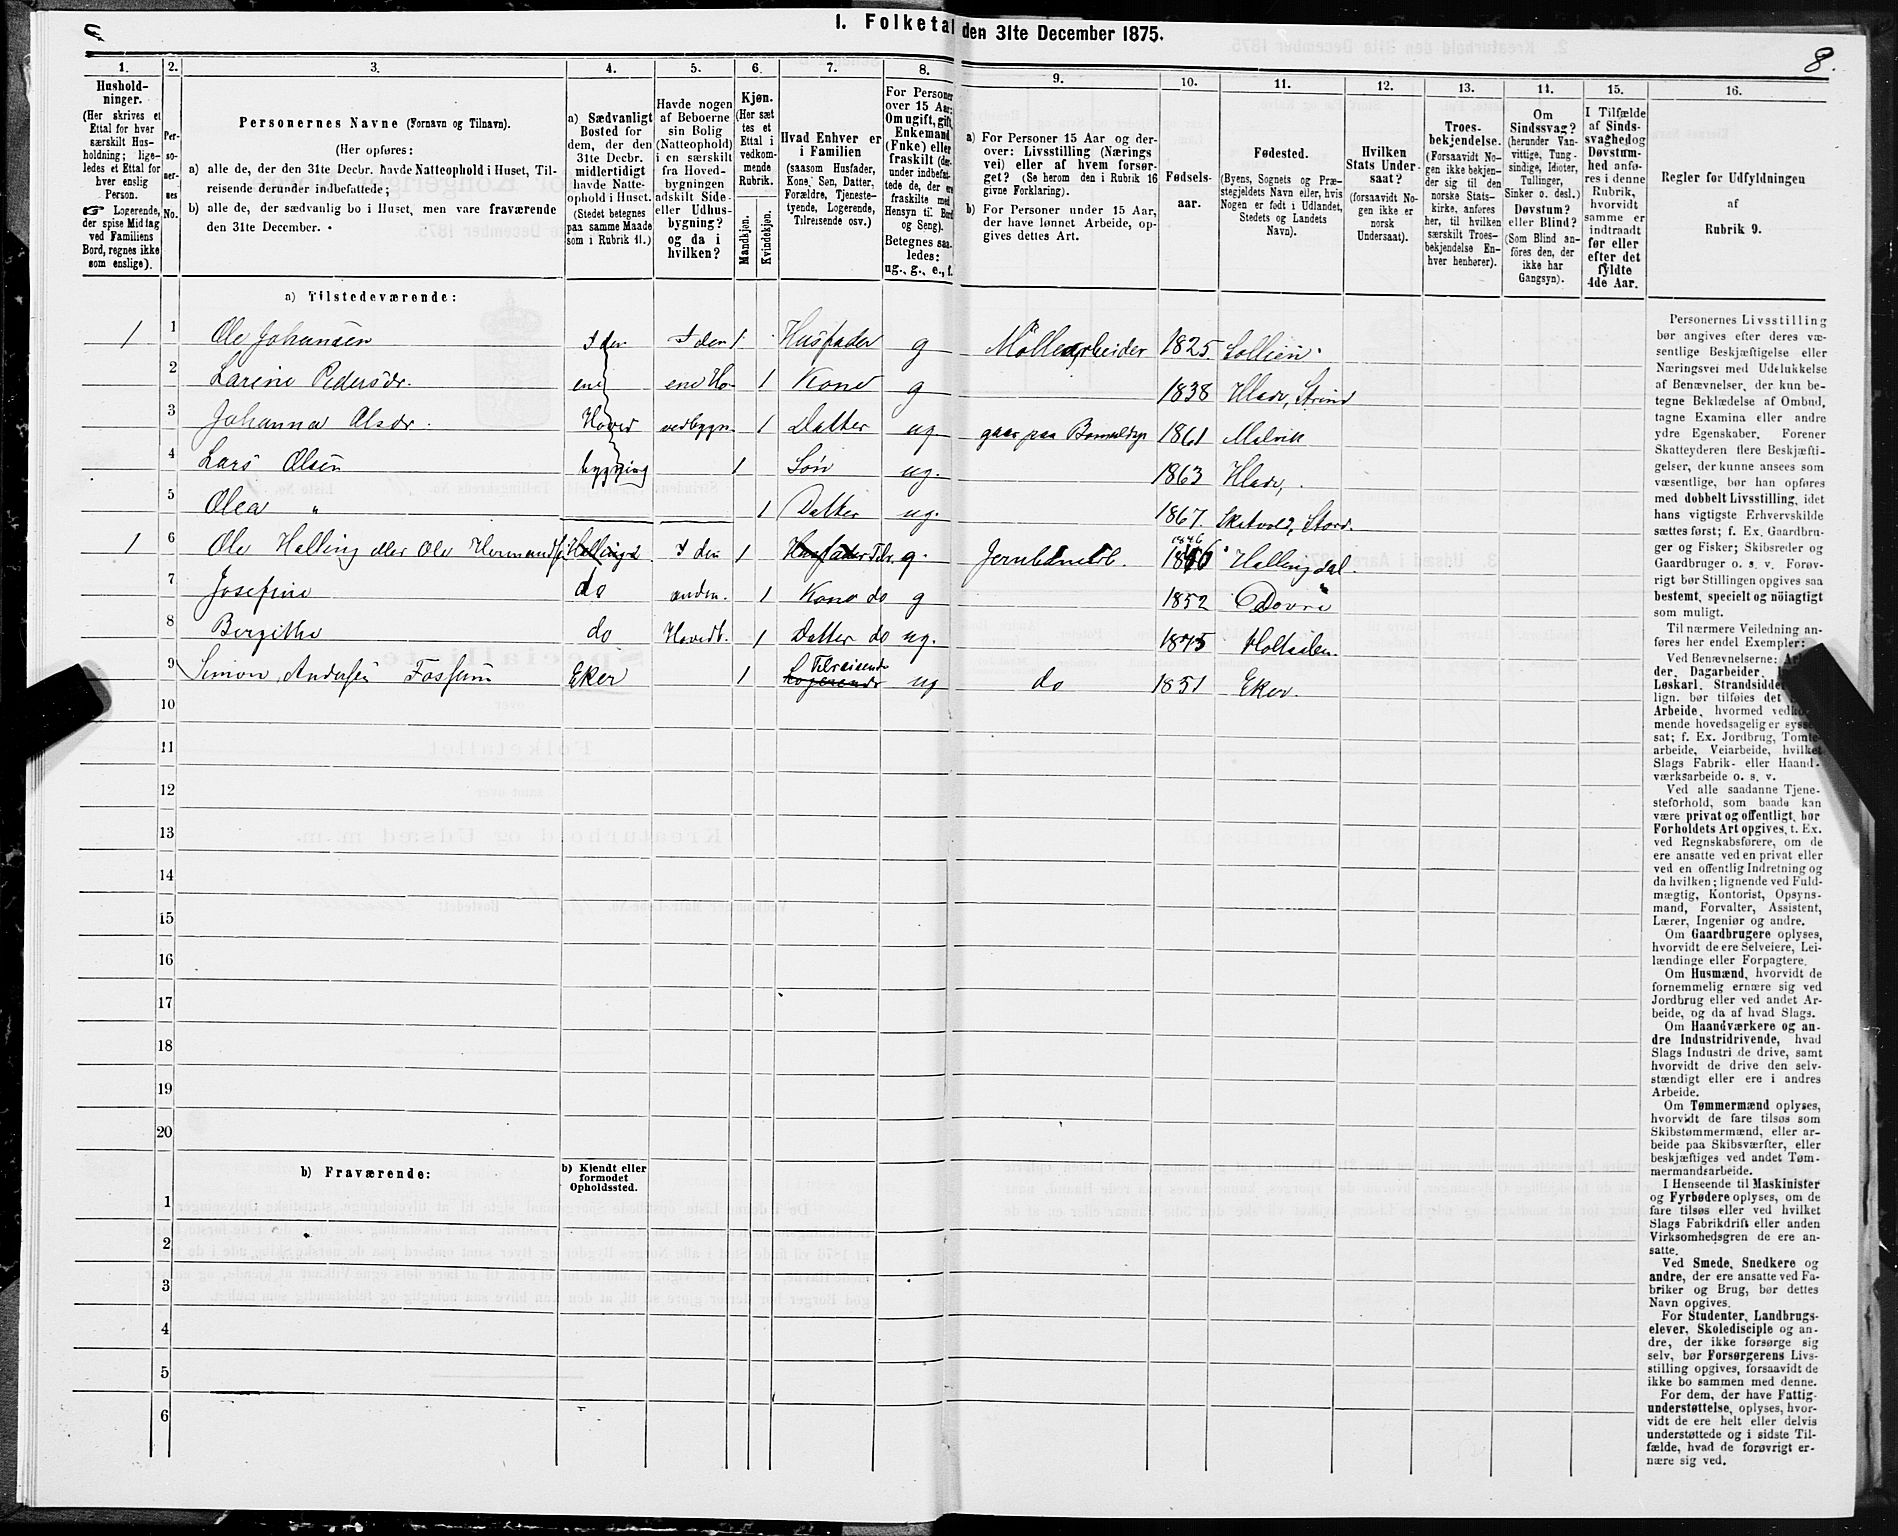 I. Folketal den 31te December 1875.
8.
1. 2. 3. 4. 5. 6. 7. 8. 9. 10. 11. 12. 13. 14. 15. 16.
Hushold-
ninger.
(Her skrives et
Ettal for hver
særskilt Hus-
holdning; lige-
ledes et Ettal for
hver enslig
Person.
Logerende,
der spise Middag
ved Familiens
Bord, regnes ikke
som enslige).
Per-
so-
ner-
nes
No.
Personernes Navne (Fornavn og Tilnavn).
(Her opføres:
a) alle de, der den 31te Decbr. havde Natteophold i Huset, Til-
reisende derunder indbefattede;
b) alle de, der sædvanlig bo i Huset, men vare fraværende
den 31te December.
a) Sædvanligt
Bosted for
dem, der den
31te Decbr.
midlertidigt
havde Natte-
ophold i Huset.
(Stedet betegnes
paa samme Maade
som i Rubrik 4b.)
Havde nogen
af Beboerne
sin Bolig
(Natteophold)
i en særskilt
fra Hoved-
bygningen
adskilt Side-
eller Udhus-
bygning?
og da i
hvilken?
Kjøn.
(Her sæt
tes et
Ettal i
vedkom-
mende
Rubrik.
Mandkjøn.
Kvindekjøn.
Hvad Enhver er
i Familien
(saasom Husfader,
Kone, Søn, Datter,
Forældre, Tjeneste-
tyende, Logerende,
Tilreisende osv.)
For Personer
over 15 Aar:
Om ugift, gift,
Enkemand
(Enke) eller
fraskilt (der-
under indbefat-
tede de, der ere
fraskilte med
Hensyn til Bord
og Seng).
Betegnes saa-
ledes:
ug., g., e., f.
a) For Personer 15 Aar og der-
over: Livsstilling (Nærings
vei) eller af hvem forsør-
get? (Se herom den i Rubrik 16
givne Forklaring).
b) For Personer under 15 Aar,
der have lønnet Arbeide, op-
gives dettes Art.
Fødsels-
aar.
Fødested.
(Byens, Sognets og Præ-
stegjeldets Navn eller, hvis
Nogen er født i Udlandet,
Stedets og Landets
Navn).
Hvilken
Stats Under-
saat?
(forsaavidt No-
gen ikke er
norsk
Undersaat).
Troes-
bekjendelse.
(Forsaavidt No-
gen ikke bekjen-
der sig til den
norske Stats-
kirke, anføres
her, til hvilken
særskilt Troes-
bekjendelse En-
hver henhører).
Om
Sindssvag?
(herunder Van-
vittige, Tung-
sindige, Idioter,
Tullinger,
Sinker o. desl.)
Døvstum?
eller Blind?
(Som Blind an-
føres den, der
ikke har
Gangsyn).
I Tilfælde
af Sinds-
svaghed og
Døvstum-
hed anfø-
res i denne
Rubrik,
hvorvidt
samme er
indtraadt
før eller
efter det
fyldte
4de Aar.
Regler for Udfyldningen
af
Rubrik 9.
a) Tilstedeværende:
1 1 Ole Johansen I den I den 1 Husfader g Møllearbeider 1825 Sollien
2 Larine Pedersdr. ene ene Ho- 1 Kone g 1838 Hlade, Strind
3 Johanna Olsdr. Hoved vedbygn. 1 Datter ug gaar paa 1861 Malvik
4 Lars Olsen bygning 1 Søn ug. 1863 Hlade,
5 Olea " 1 Datter ug. 1867 Skatvold, Stord.
1 6 Ole Halling eller Ole Hallingd. I den 1 Husfader Tilr. g. 1846 Hallingdal
7 Josefine do anden 1 Kone do g 1852 Dovre
8 Bergithe do Hovedb. 1 Datter do ug. 1875 Holtaalen
9 Simon Andersen Fossum Eker 1 Logerende Tilreisende ug do 1851 Eker
10
11
12
13
14
15
16
17
18
19
20
b) Fraværende:
b) Kjendt eller
formodet
Opholdssted.
1
2
3
4
5
6
Personernes Livsstilling
bør angives efter deres væ-
sentlige Beskjæftigelse eller
Næringsvei med Udelukkelse
af Benævnelser, der kun be-
tegne Beklædelse af Ombud,
tagne Examina eller andre
ydre Egenskaber. Forener
Skatteyderen flere Beskjæfti-
gelser, der kunne ansees som
væsentlige, bør han opføres
med dobbelt Livsstilling, idet
hans vigtigste Erhvervskilde
sættes først; f. Ex. Gaardbru-
ger og Fisker; Skibsreder og
Gaardbruger o. s. v. Forøv-
rigt bør Stillingen opgives saa
bestemt, specielt og nöiagtigt
som muligt.
Til nærmere Veiledning an-
føres her endel Exempler:
Ved Benævnelserne:
der, Dagarbeider,
Løskarl, Strandsidder
lign. bør tilføies det
Arbeide, hvormed vedkom-
mende hovedsagelig er syssel-
sat; f. Ex. Jordbrug, Tomte-
arbeide, Veiarbeide, hvilket
Slags Fabrik- eller Haand-
værksarbeide o. s. v.
Ved alle saadanne Tjene-
steforhold, som baade kan
være privat og offentligt, bør
Forholdets Art opgives, f. Ex.
ved Regnskabsførere, om de
ere ansatte ved en privat eller
ved en offentlig Indretning og
da hvilken; lignende ved Fuld-
mægtig, Kontorist, Opsyns-
mand, Forvalter, Assistent,
Lærer, Ingeniør og andre.
Om Gaardbrugere oplyses,
hvorvidt de ere Selveiere, Lei-
lændinge eller Forpagtere.
Om Husmænd, hvorvidt de
fornemmelig ernære sig ved
Jordbrug eller ved andet Ar-
beide, og da af hvad Slags.
Om Haandværkere og an-
dre Industridrivende, hvad
Slags Industri de drive, samt
hvorvidt de drive den selv-
stændigt eller ere i andres
Arbeide.
Om Tømmermænd oplyses,
hvorvidt de fare tilsøs som
Skibstømmermænd, eller ar-
beide paa Skibsværfter, eller
beskjæftiges ved andet Tøm-
mermandsarbeide.
I Henseende til Maskinister
og Fyrbødere oplyses, om de
fare tilsøs eller ved hvilket
Slags Fabrikdrift eller anden
Virksomhedsgren de ere an-
satte.
Ved Smede, Snedkere og
andre, der ere ansatte ved Fa-
briker og Brug, bør dettes
Navn opgives.
For Studenter, Landbrugs-
elever, Skoledisciple og an-
dre, der ikke forsørge sig
selv, bør Forsørgerens Livs-
stilling opgives, forsaavidt de
ikke bo sammen med denne.
For dem, der have Fattig-
understøttelse, oplyses, hvor-
vidt de ere helt eller delvis
understøttede og i sidste Til-
fælde, hvad de forøvrigt er-
nære sig ved.